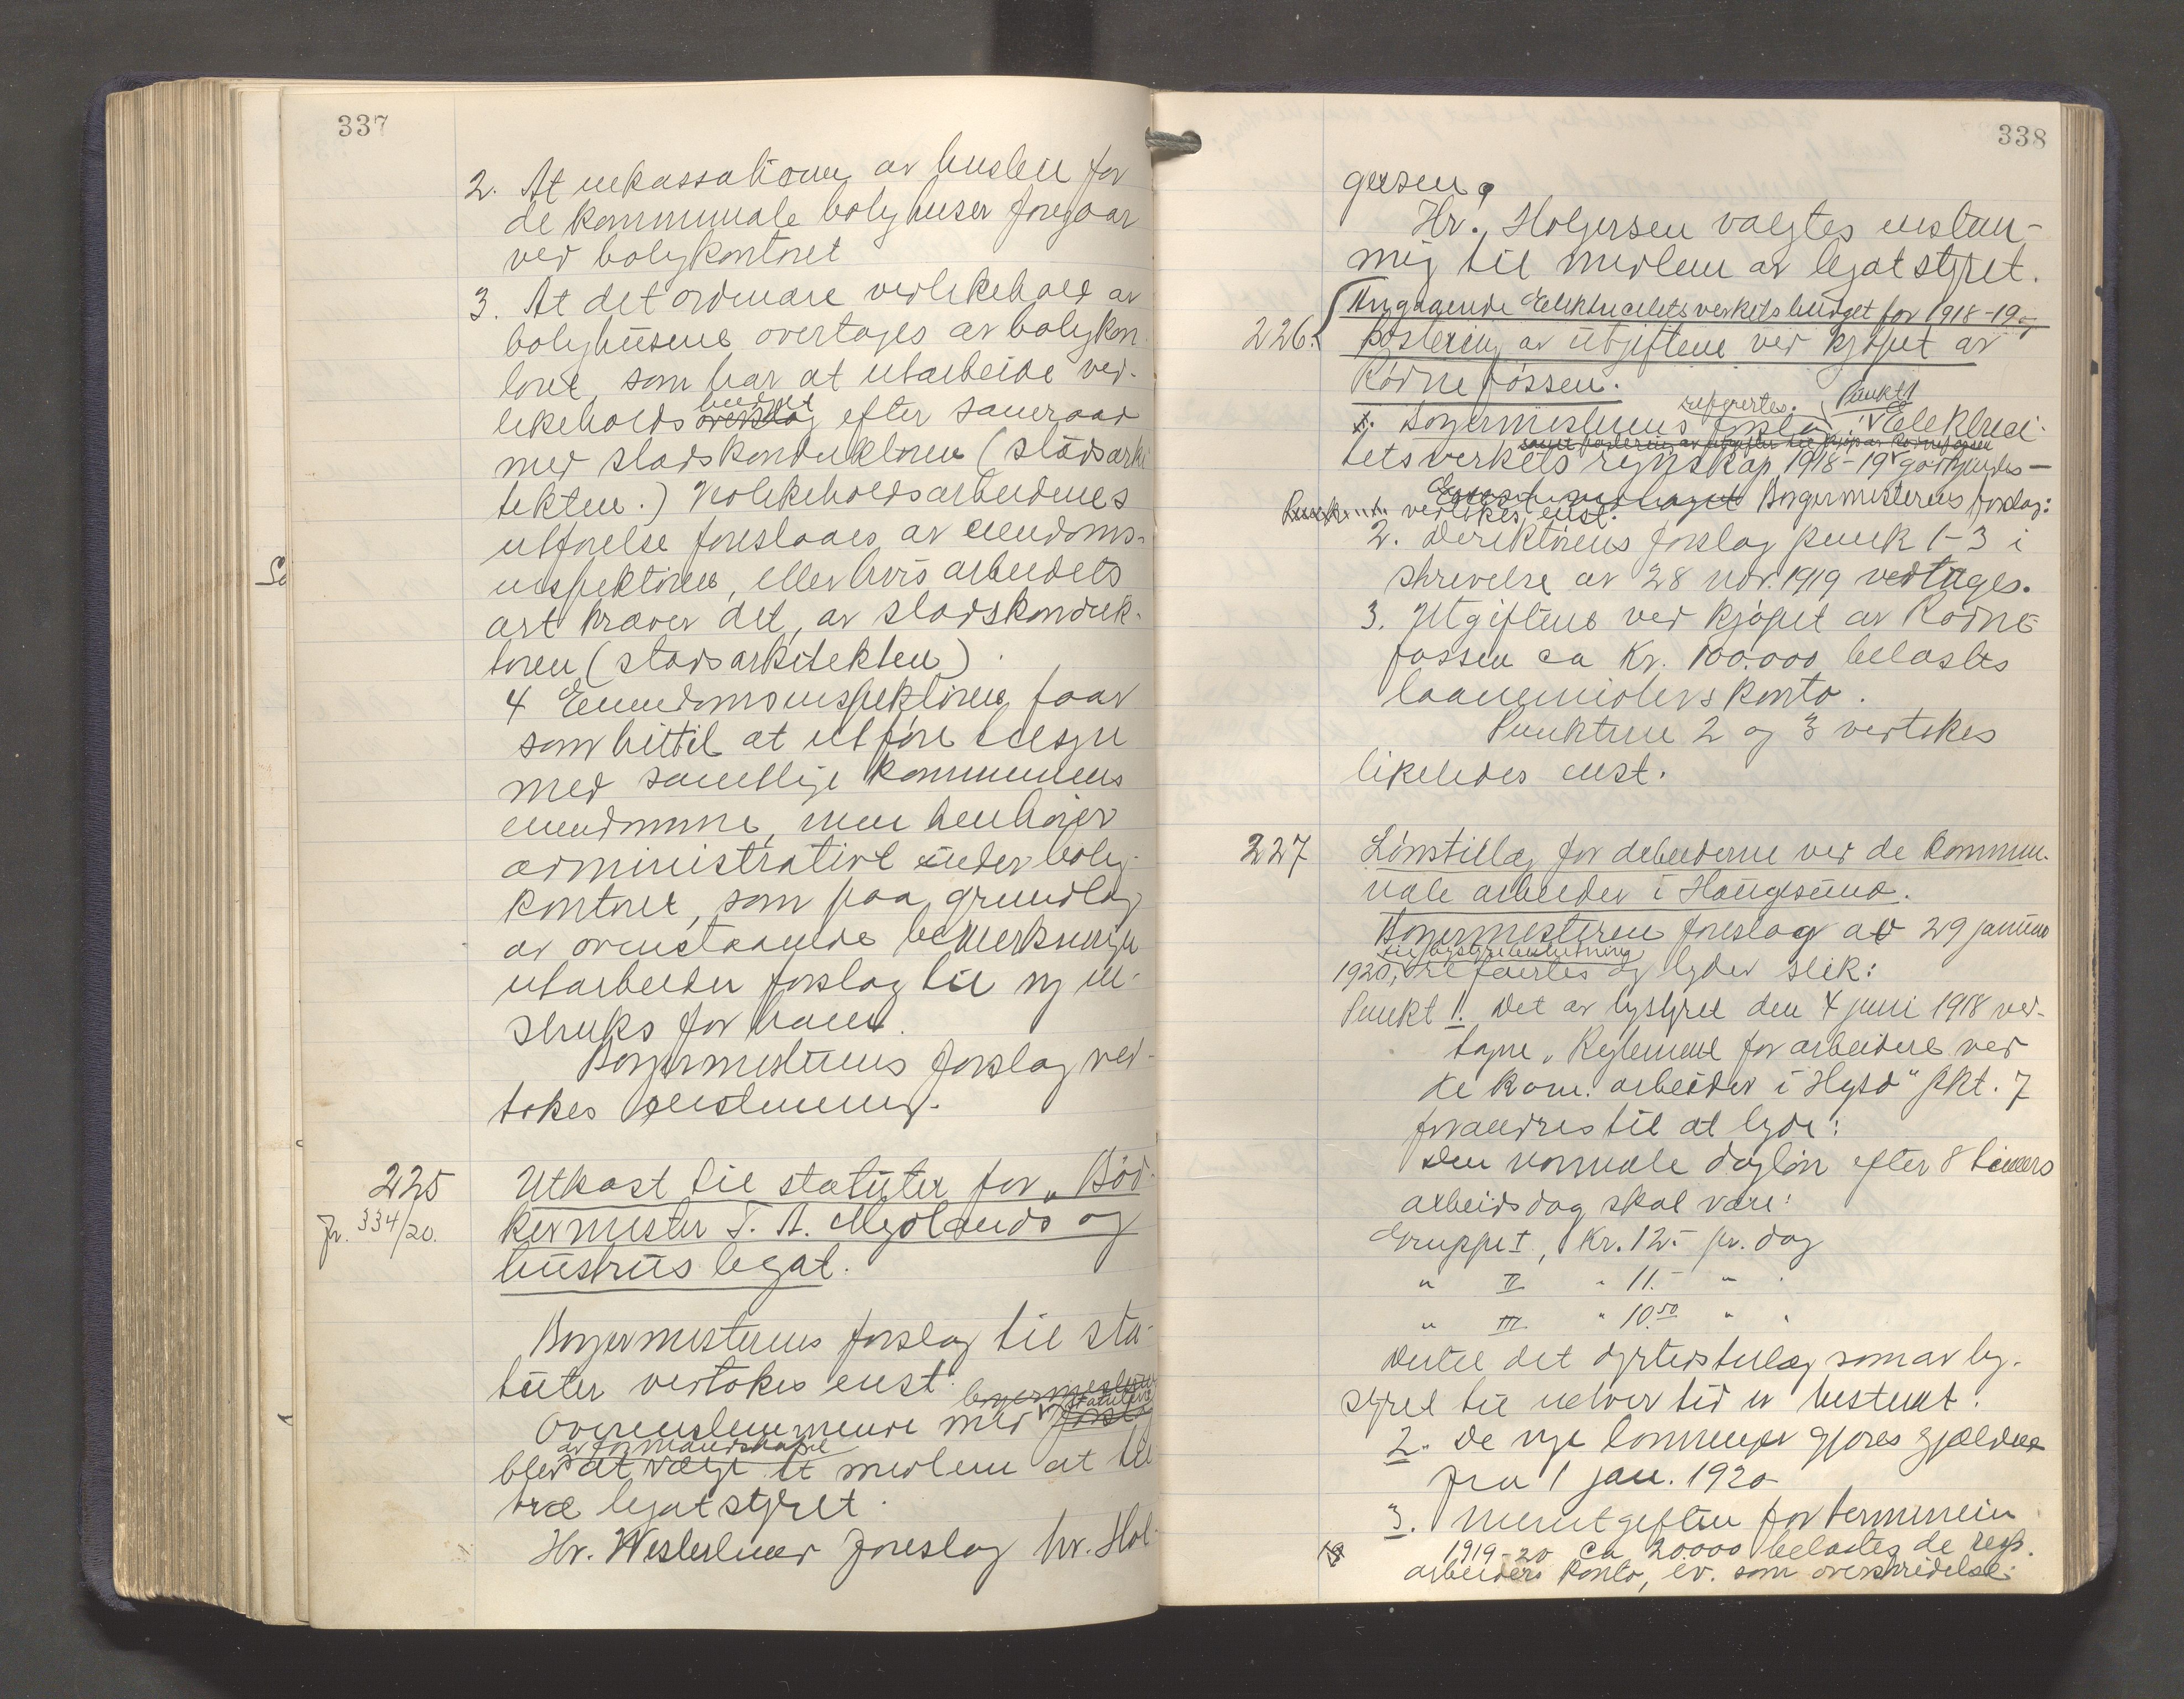 337
2. At inkassationen av husleie for
de kommunale bolighuser foregaar
ved boligkontoret
3. At det ordinære vedlikehold av
bolighusene overtages av boligkon-
toret, som har at utarbeide ved-
likeholdsbudget efter samraad
med stadskonduktøren (stadsarki
tekten.) Vedlikeholdsarbeidenes
utførelse foreslaaes av eiendoms-
inspektøren, eller hvis arbeidets
art kræver det, av stadskonduk-
tøren (stadsarkitekten)
4 Eiendomsinspektøren faar
som hittil at utføre tilsyn
med samtlige kommunens
eiendomme, men henhører
administrativt under bolig-
kontoret, som paa grundlag
av ovenstaaende bemerkninger
utarbeider forslag til ny in-
struks for ham.
Borgermesterens forslag ved-
tokes enstemmig.
225
Jr. 334/20.
Utkast til statuter for "Bød-
kermester T. A. Mejlænds og
hustrus legat.
Borgermesterens forslag til sta-
tuter vedtokes enst.
Overensstemmende med statutene
blev av formandskapet
at vælge et medlem at til
træ legatstyret.
Hr. Westerlund foreslog hr. Hol-
338
gersen.
Hr. Holgersen valgtes enstem-
mig til medlem av legatstyret.
226.
Angaaende Elektricitetsverkets budget for 1918-19,
postering av utgiftene ved kjøpet av
Rødnefossen.
referertes. Punkt 1
1. Borgermesterens forslag: Elektrici-
samt postering av utgifter til kjøp av Rødnefossen
tetsverkets regnskap 1918-19 godkjendes -
Borgermesterens forslag:
vedtokes enst.
2. Direktørens forslag punk 1-3 i
skrivelse av 28 nov. 1919 vedtages.
3. Utgiftene ved kjøpet av Rødne-
fossen ca Kr. 100.000 belastes
laanemidlers konto.
Punktene 2 og 3 vedtokes
likeledes enst.
227
Lønstillæg for arbeiderne ved de kommu-
nale arbeider i Haugesund.
Borgermesteren foreslag av 29 januar
til bystyrebeslutning
1920, refertes og lyder slik:
Punkt 1. Det av bystyret den 4 juni 1918 ved-
tagne "Reglement for arbeidere ved
de kom. arbeider i Hgsd" pkt. 7
forandres til at lyde:
Den normale dagløn efter 8 timers
arbeidsdag skal være:
Gruppe I, Kr. 12.- pr. dag
" II " 11.- " "
" III " 10.50 " "
Dertil det dyrtidstillæg som av by-
styret til enhver tid er bestemt.
2. De nye lønninger gjøres gjældende
fra 1 jan. 1920
3. Merutgiften for terminen
1919-20 ca 20000 belastes de resp.
arbeiders konto, ev. som overskridelse.